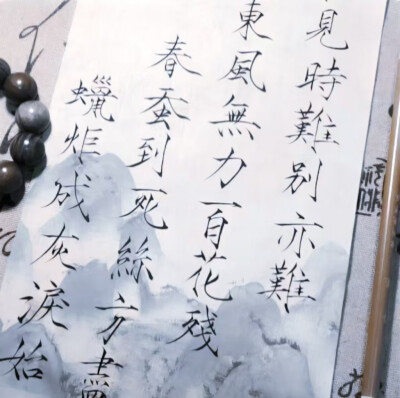 見時難别亦難
東風無力百花殘
春蚕到死絲方盡
蠟炬成灰淚始